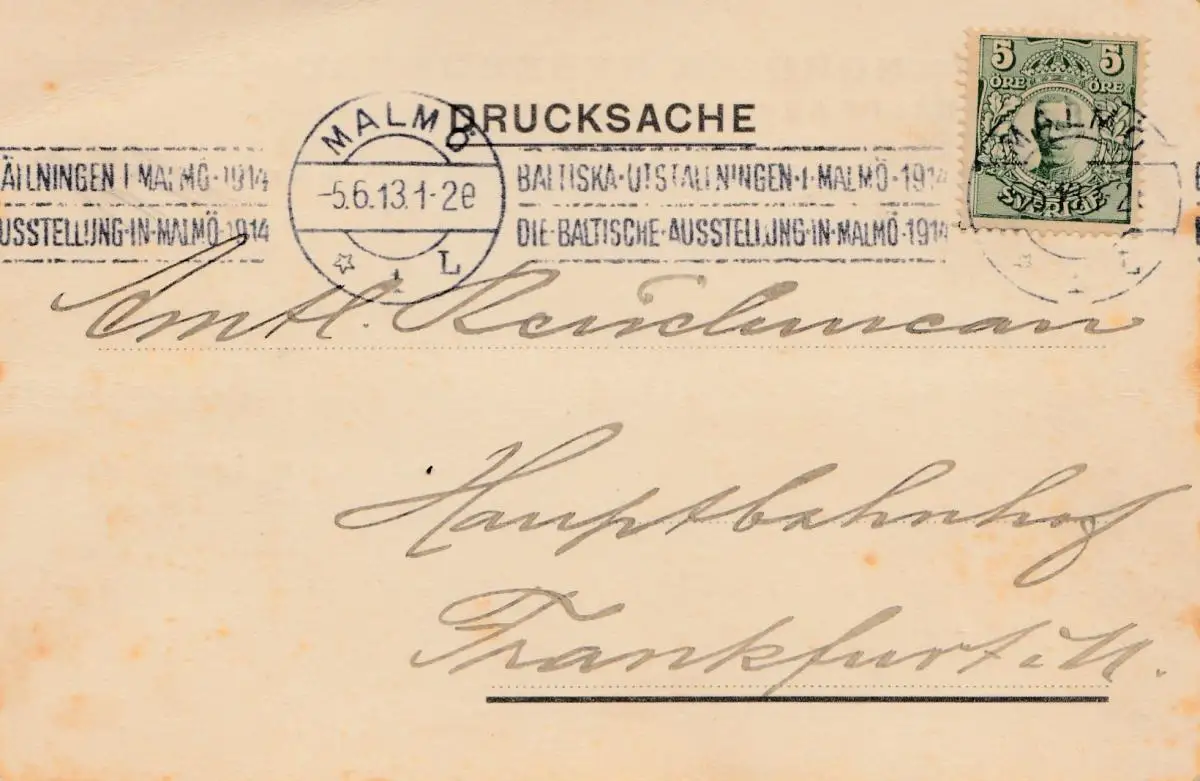 5 5
ÖRE ÖRE
SVERIGE
DRUCKSACHE
MALMÖ
-5.6.13.1-2e
1 L
ÄLLNINGEN I MALMÖ·1914
USSTELLUNG·IN·MALMÖ·1914
BALTISKA·UTSTÄLLNINGEN·I·MALMÖ·1914
DIE·BALTISCHE·AUSSTELLUNG·IN·MALMÖ·1914
MALMÖ
L
Amtl.
Hauptbahnhof
Frankfurt a M.